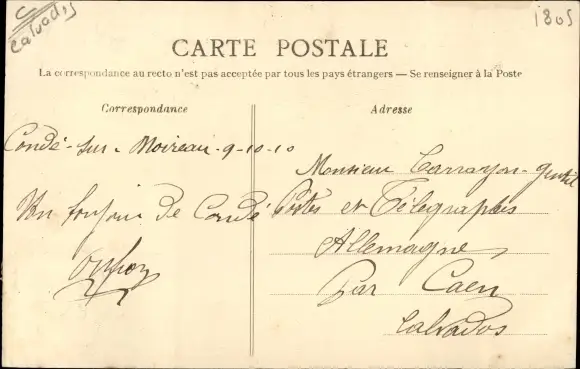 C
Calvados
1805
CARTE POSTALE
La correspondance au recto n'est pas acceptée par tous les pays étrangers — Se renseigner à la Poste
Correspondance
Adresse
Condé-sur-Noireau-9-10-10
Un bonjour de Condé
Monsieur Carrayon-
Postes et Télégraphes
Allemagne
Par Caen
Calvados